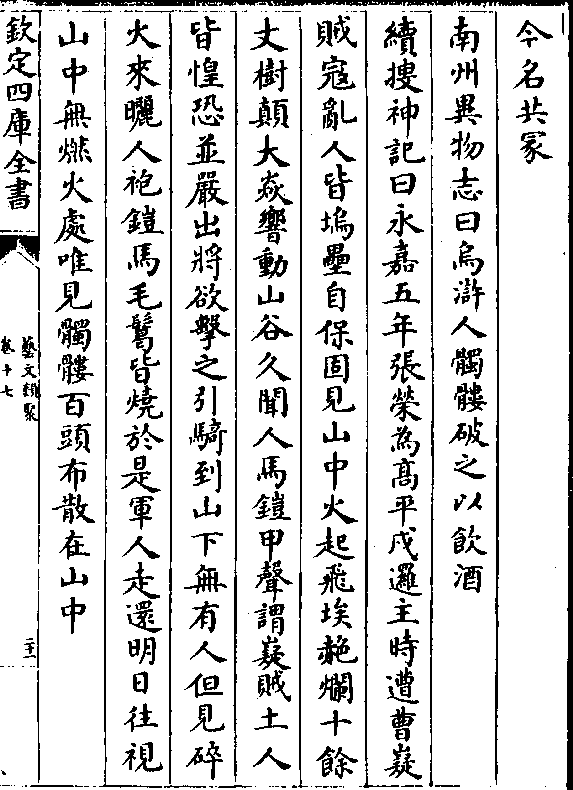 今名共冢
南州異物志曰烏滸人髑髏破之以飲酒
續搜神記曰永嘉五年張榮為髙平戍邏主時遭曹嶷
賊寇亂人皆塢壘自保固見山中火起飛埃𧹞爛十餘
丈樹顛大焱響動山谷久聞人馬鎧甲聲謂嶷賊土人
皆惶恐並嚴出將欲擊之引騎到山下無有人但見碎
火來曬人袍鎧馬毛鬐皆燒於是軍人走還明日往視
山中無燃火處唯見髑髏百頭布散在山中
欽定四庫全書
藝文類聚
卷十七
二十一